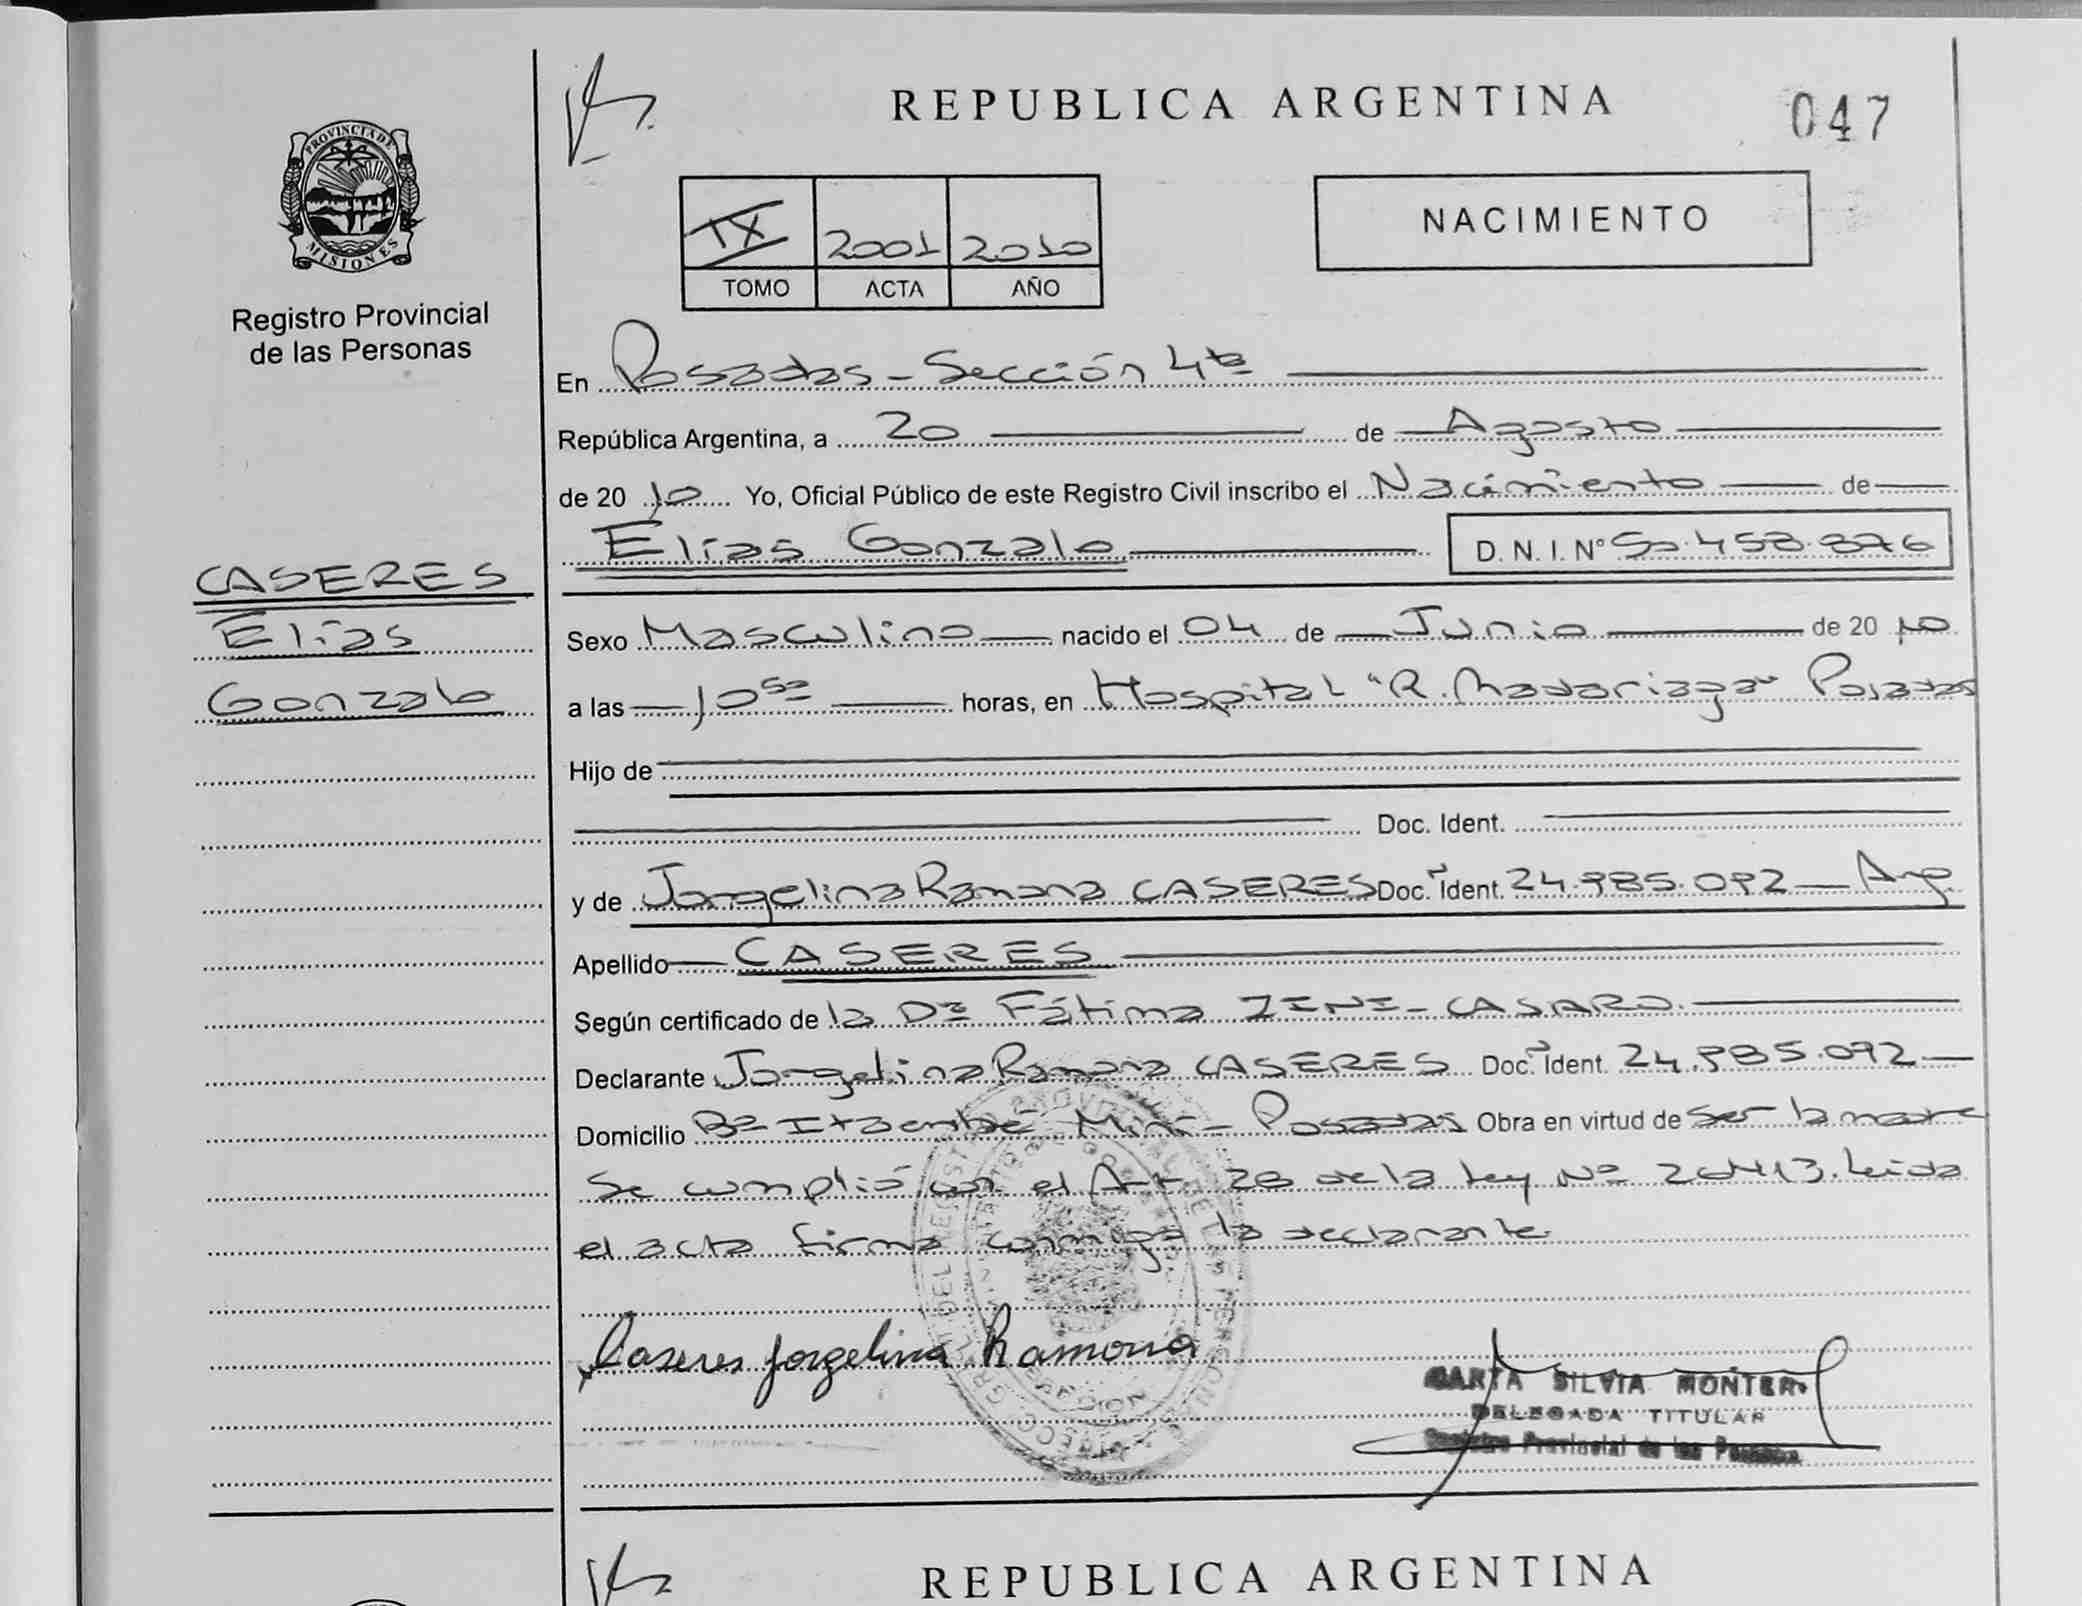 REPUBLICA ARGENTINA
047
PROVINCIA DE
MISIONES
Registro Provincial
de las Personas
IX 2001 2010
TOMO ACTA AÑO
NACIMIENTO
En Posadas - Sección 4ta
República Argentina, a 20 de Agosto
de 2010 Yo, Oficial Público de este Registro Civil inscribo el Nacimiento de
Elías Gonzalo D.N.I. Nº 50.458.876
CASERES
Elías
Gonzalo
Sexo Masculino nacido el 04 de Junio de 2010
a las 10 50 horas, en Hospital "R. Madariaga" Posadas
Hijo de
Doc. Ident.
y de Jorgelina Ramona CASERES Doc. Ident. 24.985.092 - Arg.
Apellido CASERES
Según certificado de la Dra Fátima ZINI - CASARO.
Declarante Jorgelina Ramona CASERES Doc. Ident. 24.985.092
Domicilio Bº Itaembé Miní - Posadas Obra en virtud de ser la madre
Se cumplió con el Art. 28 de la Ley Nº 26.413. Leida
el acta firma conmigo la declarante
Caseres Jorgelina Ramona
SILVIA MONTERO
DELEGADA TITULAR
Registro Provincial de las Personas
REPUBLICA ARGENTINA